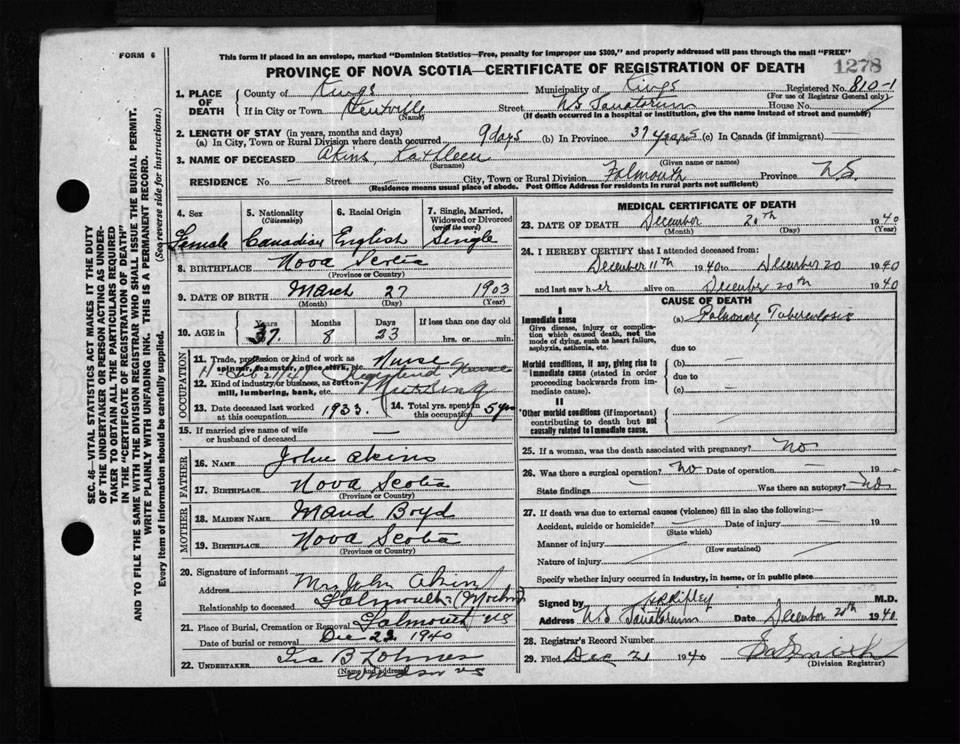 FORM 6
This form if placed in an envelope, marked "Dominion Statistics—Free, penalty for improper use $300," and properly addressed will pass through the mail "FREE"
PROVINCE OF NOVA SCOTIA—CERTIFICATE OF REGISTRATION OF DEATH
1278
1. PLACE OF DEATH
County of Kings Municipality of Kings Registered No. 810-1
(For use of Registrar General only)
If in City or Town Kentville Street NS Sanatorium House No.
(Name)
(If death occurred in a hospital or institution, give the name instead of street and number)
2. LENGTH OF STAY (in years, months and days)
(a) In City, Town or Rural Division where death occurred 9 days (b) In Province 37 years (c) In Canada (if immigrant) —
3. NAME OF DECEASED Akins, Kathleen
(Surname) (Given name or names)
RESIDENCE No. — Street — City, Town or Rural Division Falmouth Province NS.
(Residence means usual place of abode. Post Office Address for residents in rural parts not sufficient)
SEC. 46—VITAL STATISTICS ACT MAKES IT THE DUTY
OF THE UNDERTAKER OR PERSON ACTING AS UNDER-
TAKER TO OBTAIN ALL THE PARTICULARS REQUIRED
IN THE "CERTIFICATE OF REGISTRATION OF DEATH"
AND TO FILE THE SAME WITH THE DIVISION REGISTRAR WHO SHALL ISSUE THE BURIAL PERMIT.
WRITE PLAINLY WITH UNFADING INK. THIS IS A PERMANENT RECORD.
Every item of information should be carefully supplied. (See reverse side for instructions.)
4. Sex 5. Nationality 6. Racial Origin 7. Single, Married,
(Citizenship) Widowed or Divorced
(write the word)
Female Canadian English Single
8. BIRTHPLACE Nova Scotia
(Province or Country)
9. DATE OF BIRTH March 27 1903
(Month) (Day) (Year)
10. AGE in Years Months Days If less than one day old
37. 8 23 hrs. or min.
OCCUPATION
11. Trade, profession or kind of work as Nurse
spinner, teamster, office clerk, etc.
Registered Nurse
12. Kind of industry or business, as cotton- Nursing
mill, lumbering, bank, etc.
13. Date deceased last worked 1933. 14. Total yrs. spent in 5 yrs
at this occupation this occupation
15. If married give name of wife
or husband of deceased —
FATHER
16. NAME John Akins
17. BIRTHPLACE Nova Scotia
(Province or Country)
MOTHER
18. MAIDEN NAME Maud Boyd
19. BIRTHPLACE Nova Scotia
(Province or Country)
20. Signature of informant Mrs John Akins
Address Falmouth
Relationship to deceased (Mother)
21. Place of Burial, Cremation or Removal Falmouth NS
Date of burial or removal Dec 22 1940
22. UNDERTAKER Ira B
(Name and address)
Windsor NS
MEDICAL CERTIFICATE OF DEATH
23. DATE OF DEATH December 20th 1940
(Month) (Day) (Year)
24. I HEREBY CERTIFY that I attended deceased from:
December 11th 1940 to December 20 1940
and last saw her alive on December 20th 1940
CAUSE OF DEATH
I
Immediate cause (a) Pulmonary Tuberculosis
Give disease, injury or complica-
tion which caused death, not the
mode of dying, such as heart failure,
asphyxia, asthenia, etc.
due to —
Morbid conditions, if any, giving rise to
immediate cause (stated in order
proceeding backwards from im-
mediate cause).
(b) —
due to —
(c) —
II
Other morbid conditions (if important)
contributing to death but not
causally related to immediate cause.
25. If a woman, was the death associated with pregnancy? No
26. Was there a surgical operation? No Date of operation — 19 —
State findings — Was there an autopsy? No
27. If death was due to external causes (violence) fill in also the following:—
Accident, suicide or homicide? — Date of injury — 19
(State which)
Manner of injury —
(How sustained)
Nature of injury —
Specify whether injury occurred in industry, in home, or in public place
Signed by Ripley M.D.
Address NS Sanatorium Date December 20th 1940
28. Registrar's Record Number
29. Filed Dec 21 1940
(Division Registrar)